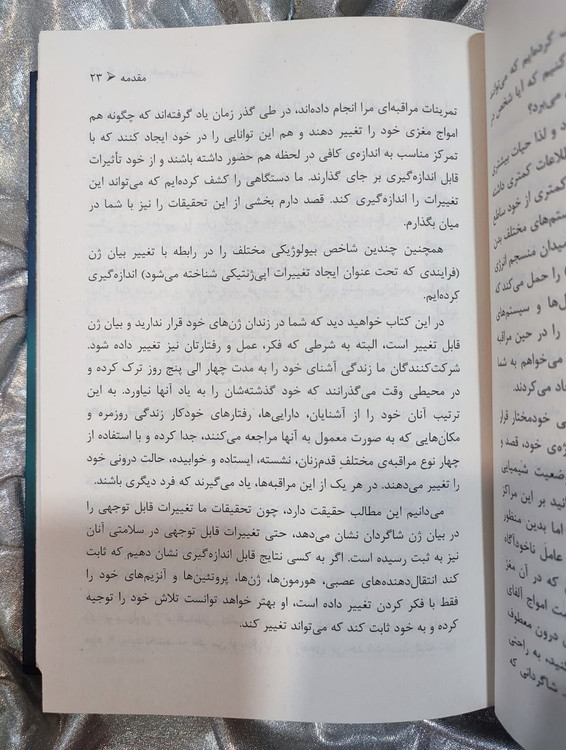 مقدمه ➤ ۲۳
تمرینات مراقبه‌ای مرا انجام داده‌اند، در طی گذر زمان یاد گرفته‌اند که چگونه هم
امواج مغزی خود را تغییر دهند و هم این توانایی را در خود ایجاد کنند که با
تمرکز مناسب به اندازه‌ی کافی در لحظه هم حضور داشته باشند و از خود تأثیرات
قابل اندازه‌گیری بر جای گذارند. ما دستگاهی را کشف کرده‌ایم که می‌تواند این
تغییرات را اندازه‌گیری کند. قصد دارم بخشی از این تحقیقات را نیز با شما در
میان بگذارم.
همچنین چندین شاخص بیولوژیکی مختلف را در رابطه با تغییر بیان ژن
(فرایندی که تحت عنوان ایجاد تغییرات اپی‌ژنتیکی شناخته می‌شود) اندازه‌گیری
کرده‌ایم.
در این کتاب خواهید دید که شما در زندان ژن‌های خود قرار ندارید و بیان ژن
قابل تغییر است، البته به شرطی که فکر، عمل و رفتارتان نیز تغییر داده شود.
شرکت‌کنندگان ما زندگی آشنای خود را به مدت چهار الی پنج روز ترک کرده و
در محیطی وقت می‌گذرانند که خود گذشته‌شان را به یاد آنها نیاورد. به این
ترتیب آنان خود را از آشنایان، دارایی‌ها، رفتارهای خودکار زندگی روزمره و
مکان‌هایی که به صورت معمول به آنها مراجعه می‌کنند، جدا کرده و با استفاده از
چهار نوع مراقبه‌ی مختلفِ قدم‌زنان، نشسته، ایستاده و خوابیده، حالت درونی خود
را تغییر می‌دهند. در هر یک از این مراقبه‌ها، یاد می‌گیرند که فرد دیگری باشند.
می‌دانیم این مطالب حقیقت دارد، چون تحقیقات ما تغییرات قابل توجهی را
در بیان ژن شاگردان نشان می‌دهد، حتی تغییرات قابل توجهی در سلامتی آنان
نیز به ثبت رسیده است. اگر به کسی نتایج قابل اندازه‌گیری نشان دهیم که ثابت
کند انتقال‌دهنده‌های عصبی، هورمون‌ها، ژن‌ها، پروتئین‌ها و آنزیم‌های خود را
فقط با فکر کردن تغییر داده است، او بهتر خواهد توانست تلاش خود را توجیه
کرده و به خود ثابت کند که می‌تواند تغییر کند.
کرده‌ایم که می‌توانیم
کنیم که آیا شخص در
می‌برد؟
د و لذا حیات بیشتری
للاعات کمتری داشته
کمتری از خود ساطع
ستم‌های مختلف بدن
میدان منسجم انرژی
) را حمل می‌کند که
ل‌ها و سیستم‌های
را در حین مراقبه
می‌خواهم به شما
جاد می‌کردند.
ی خودمختار قرار
ژه‌ی خود، قصد و
وضعیت شیمیایی
نید بر این مراکز
اما بدین منظور
عامل ناخودآگاه
که در آن مغز
ت امواج آلفای
درون معطوف
نید، به راحتی
شاگردانی که